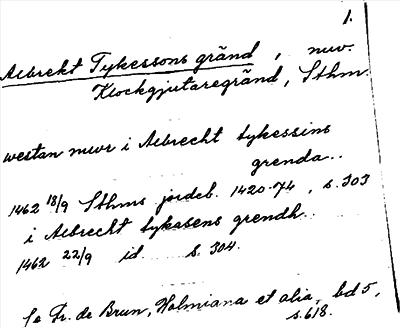 1.
Albrekt Tykessons gränd, nuv.
Klockgjutaregränd, Sthm.
westan mwr i Albrecht tykessins
grenda..
1462 18/9 Sthms jordeb. 1420-74, s. 303
i Albrecht tykasens grendh..
1462 22/9 id. s. 304.
Se Fr. de Brun, Holmiana et alia, bd 5,
s. 618.